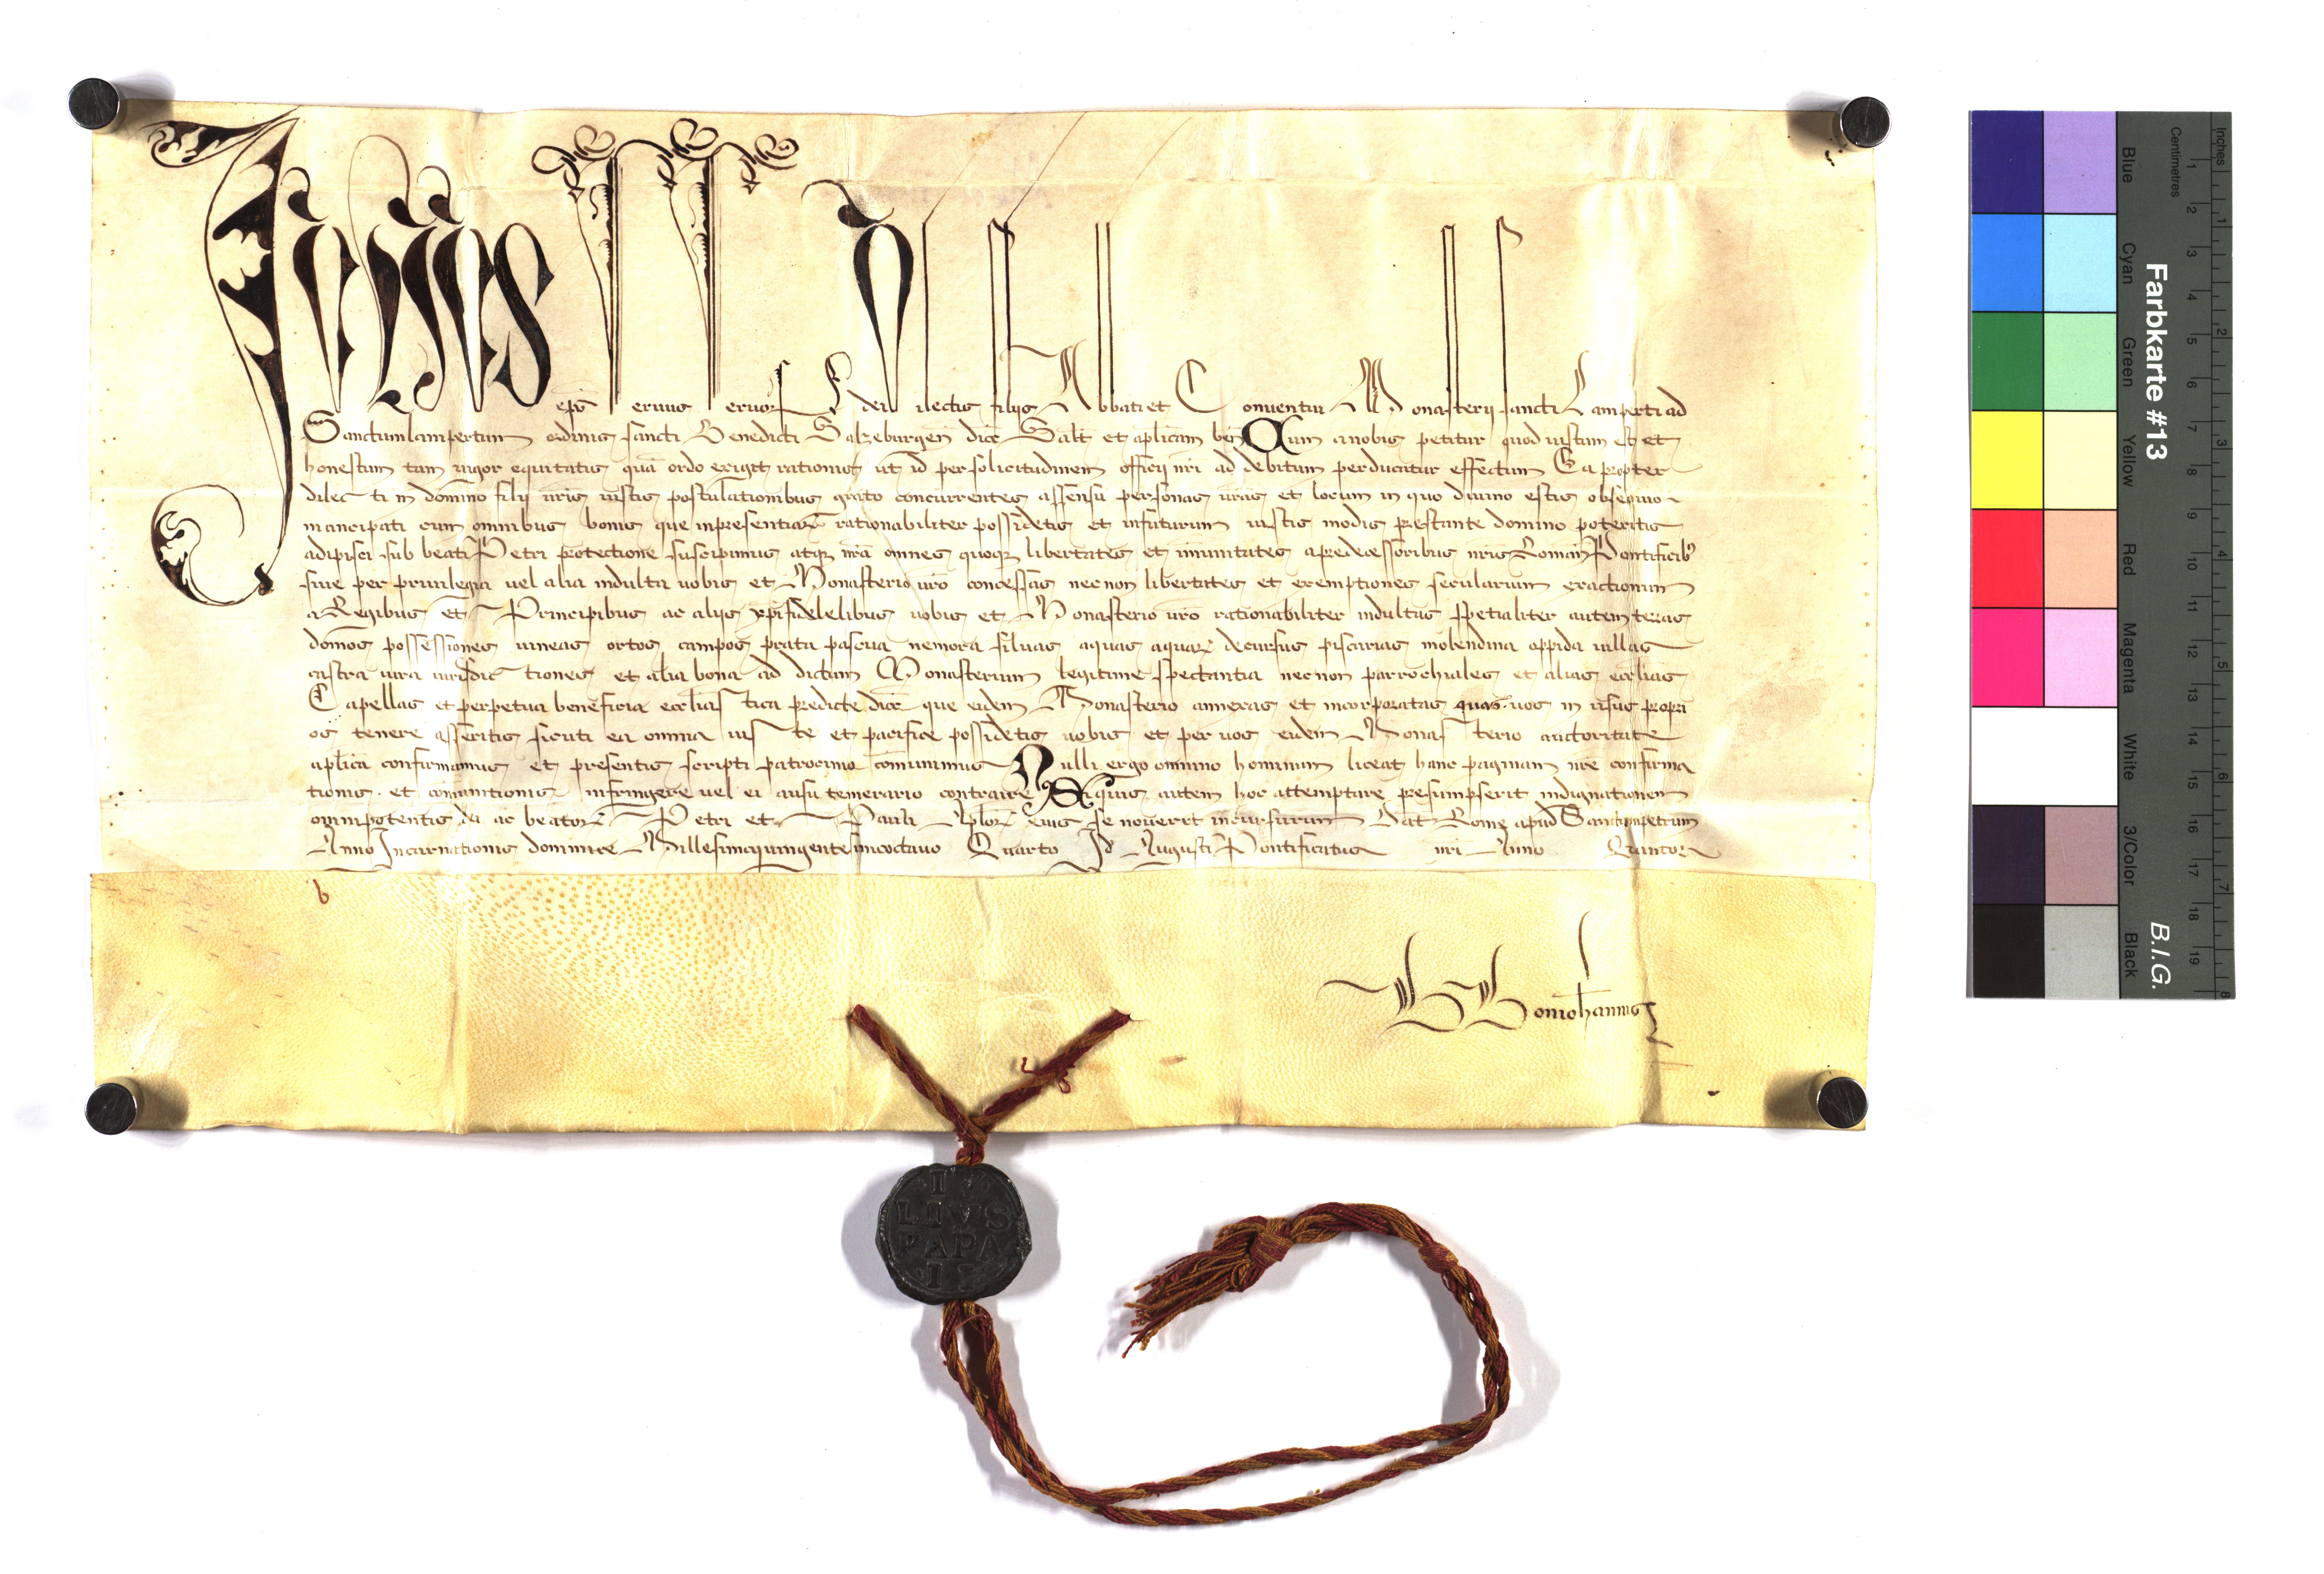 Julius epūs seruus seruor dei Dilectis filijs Abbati et Conuentui Monasterij sancti Lamperti ad
Sanctumlampertum ordinis sancti Benedicti Salzeburgeñ dioc̄ Salt̄ et aplicam beñ Cum a nobis petitur quod iustum est et
honestum tam uigor equitatis quā ordo exigit rationis ut id per solicitudinem officij nr̄i ad debitum perducatur effectum Eapropter
dilecti in domīno filij ur̄is iustis postulationibus grato concurrentes assensu personas ur̄as et locum in quo diuino estis obsequio
mancipati cum omnibus bonis que inpresentiar̄ rationabiliter possidetis et infuturum iustis modis prestante domino poteritis
adipisci sub beati Petri protectione suscipimus atq nr̄a omnes quoq libertates et imunitates apredecessoribus nr̄is Romañ Pontificib
siue per priuilegia uel alia indulta uobis et Monasterio ur̄o concessas necnon libertates et exemptiones secularium exactionum
a Regibus et Principibus ac alijs xp̄ifidelelibus uobis et Monasterio ur̄o rationabiliter indultas spetialiter autem terras
domos possessiones uineas ortos campos prata pascua nemora siluas aquas aquar̄ decursus piscarias molendina oppida uillas
castra iura iurisdictiones et alia bona ad dictum Monasterium legitime spectantia necnon parrochiales et alias ecclīas
Capellas et perpetua beneficia ecclīastica predicte dioc̄ que eidem Monasterio annexas et incorporatas quas uos in usus propri
os tenere asseritis sicuti ea omnia iuste et pacifice possidetis uobis et per uos eidem Monasterio auctoritate
aplīca confirmamus et presentis scripti patrocinio comunimus Nulli ergo omnino hominum liceat hanc paginam nr̄e confirma
tionis et comunitionis infringere uel ei ausu temerario contraire Siquis autem hoc attemptare presumpserit indignationem
omnipotentis dei ac beator̄ Petri et Pauli Aplor̄ eius se nouerit incursurum Dat Rome apud Sanctumpetrum
Anno Incarnationis dominice Millesimoquingentesimooctauo Quarto Id Augusti Pontificatus nr̄i Anno Quinto
b
Bonioh̄annis
I V
LIVS
PAPA
II
Farbkarte #13
B.I.G.
Inches
Centimetres
Blue
Cyan
Green
Yellow
Red
Magenta
White
3/Color
Black
1 2 3 4 5 6 7 8 9 10 11 12 13 14 15 16 17 18 19
1 2 3 4 5 6 7 8